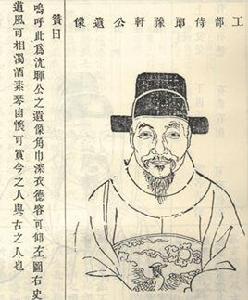 工部侍郎豫軒公遺像
贊曰
嗚呼此爲沈聊公之遺像角巾深衣德容可仰左圖右史
道風可相濁酒素琴自懷可賞今之人與古之人也